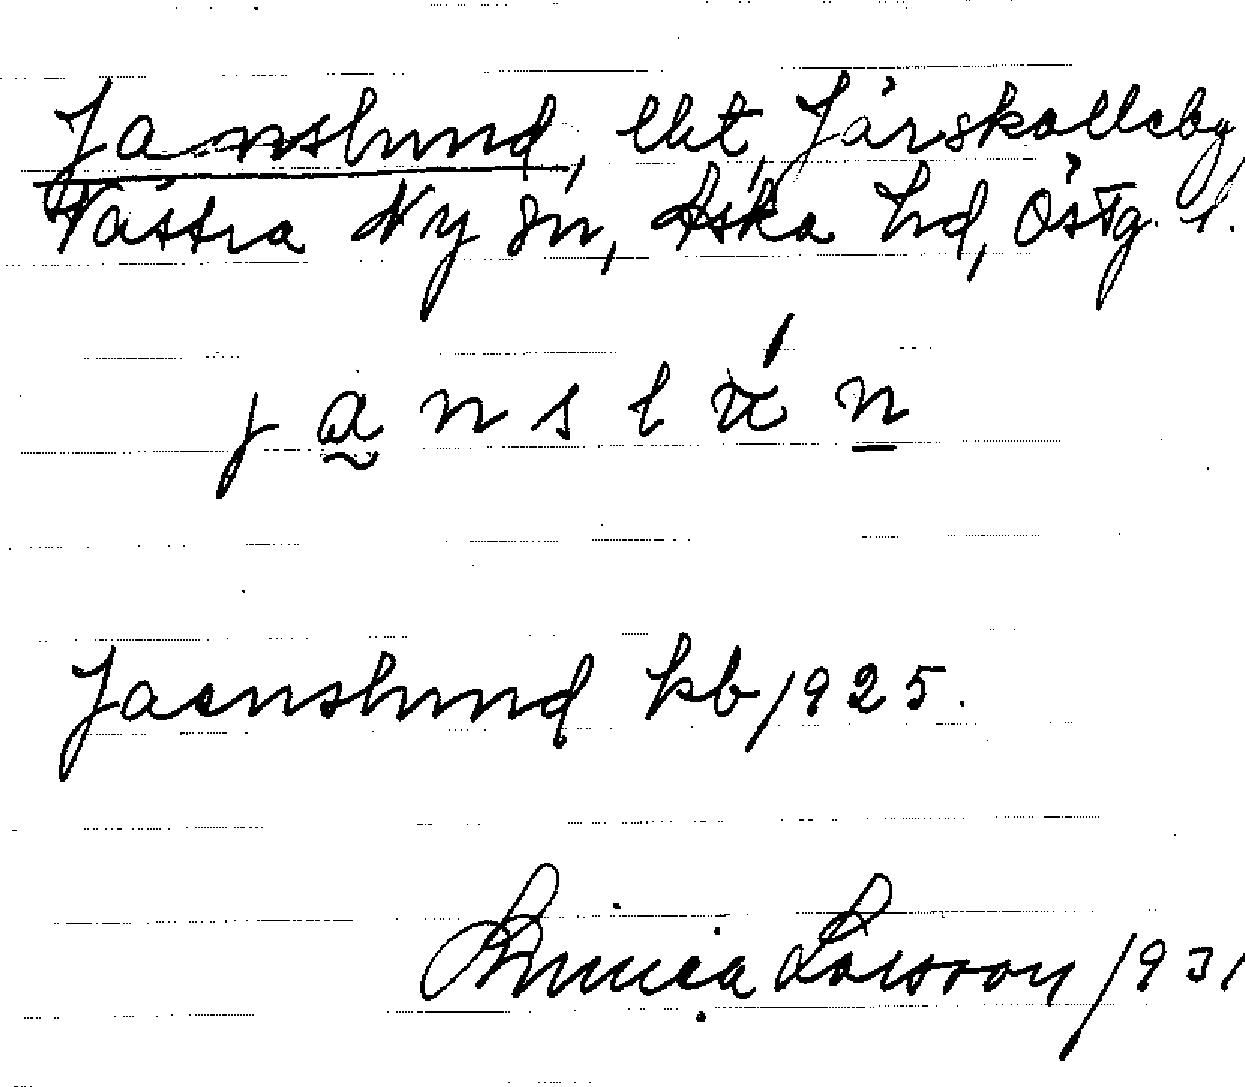 Janslund, lht, Järskalleby,
Västra Ny sn, Aska hd, Östg. l.
j a n s l ú n
Jaenslund kb 1925.
Linnea Larsson 1931